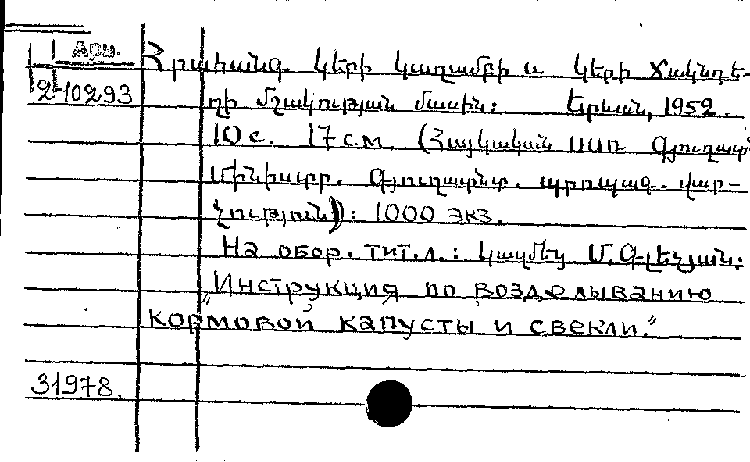 Арм.
Հրահանգ կերի կաղամբի և կերի ճակնդե-
2-10293
ղի մշակության մասին: Երևան, 1952.
10 с. 17 см. (Հայկական ՍՍՌ Գյուղատ
մինիստր. Գյուղատնտ. պրոպագ. վար-
չություն): 1000 экз.
На обор. тит. л.: Կազմեց Մ. Գլեչյան:
"Инструкция по возделыванию
кормовой капусты и свекли."
31978.